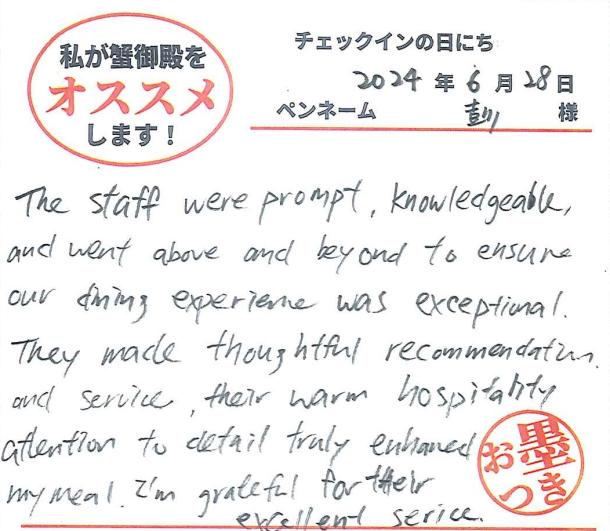 私が蟹御殿を
オススメ
します!
チェックインの日にち
2024年6月28日
ペンネーム 様
The staff were prompt, knowledgeable,
and went above and beyond to ensure
our dining experience was exceptional.
They made thoughtful recommendation.
and service, their warm hospitality
attention to detail truly enhanced
my meal. I'm grateful for their
excellent serice.
お墨
つき